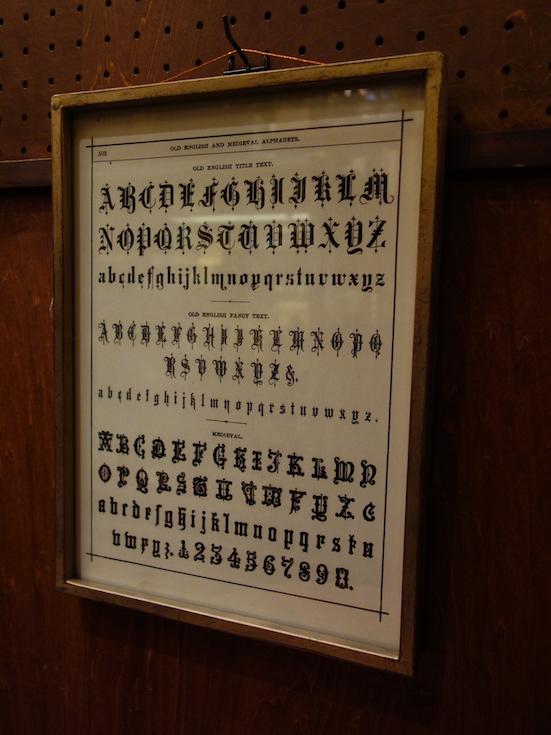 OLD ENGLISH AND MEDIEVAL ALPHABETS.
OLD ENGLISH TITLE TEXT.
ABCDEFGHIJKLM
NOPQRSTUVWXYZ
abcdefghijklmnopqrstuvwxyz
OLD ENGLISH FANCY TEXT.
ABCDEFGHIJKLMNOPQ
RSUVWXYZ&.
abcdefghijklmnopqrstuvwxyz.
MEDIEVAL.
ABCDEFGHIJKLMN
OPQRSTUVWXYZ
abcdefghijklmnopqrstu
vwxyz. 1234567890.